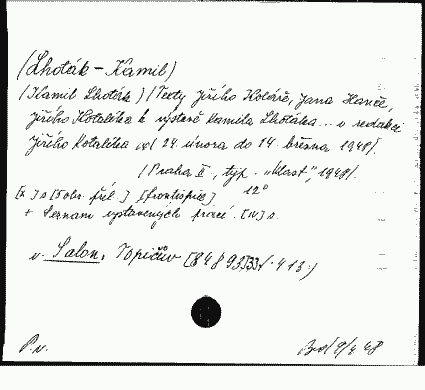 (Lhoták - Kamil)
(Kamil Lhoták) (Texty Jiřího Koláře, Jana Hanče,
Jiřího Kotalíka k výstavě Kamila Lhotáka... v redakci
Jiřího Kotalíka od 24. února do 14. března 1948).
(Praha II, typ. „Vlast", 1948).
[x] s [5 obr. příl.] [frontispice] 12°
+ Seznam vystavených prací. [IV] s.
v. Salon, Topičův [84893
P. v. 48